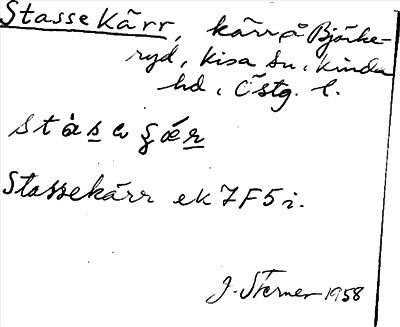 Stassekärr, kärr å Björke-
ryd, Kisa sn, Kinda
hd, Östg. l.
Stassekärr ek 7F5i.
J. Sterner 1958